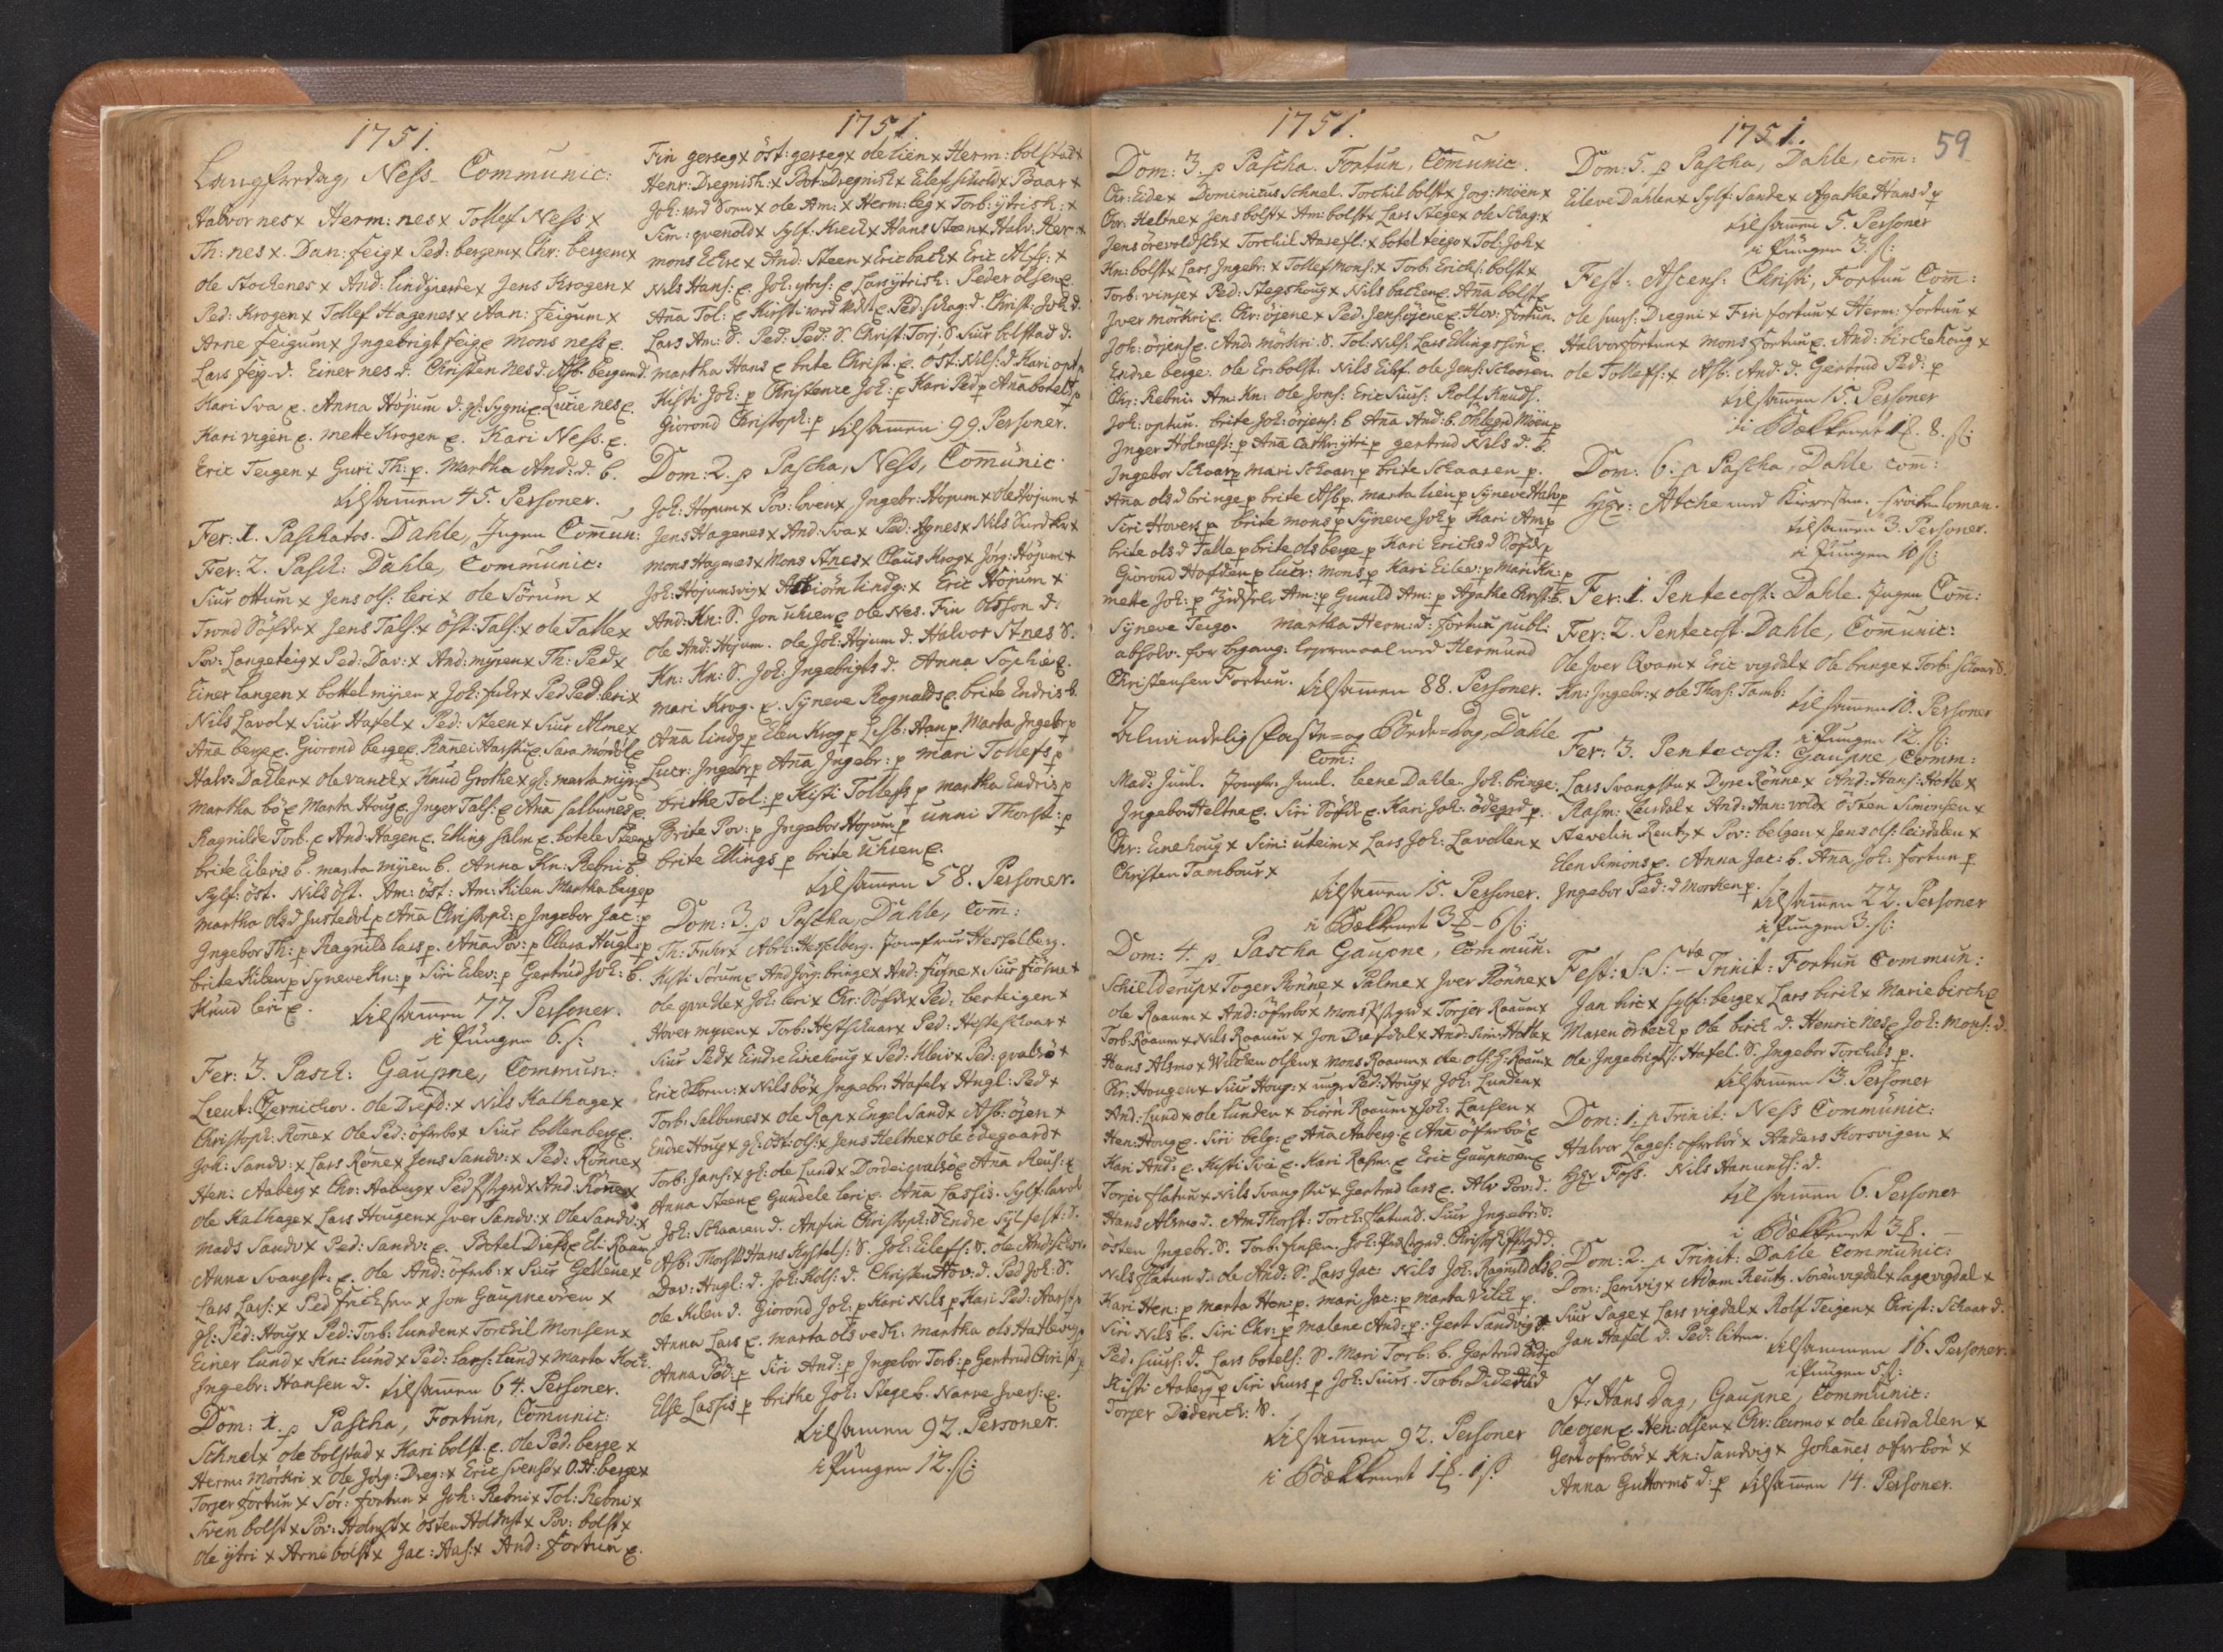 1751.
Langfredag, Ness. Communic:
Halvor nes x Herm: nes x Tollef Ness x
Th: nes x. Dan: feig x Ped: bergem x Chr: bergem x
Ole Stochenes x And: lindgierde x Jens Krogen x
Ped: Krogen x Tollef Hagenes x Han: feigum x
Arne feigum x Ingebrigt feig e mons ness e.
Lars feig. d. Einer nes d. Christen nes d. Asb: bergem d.
Kari Sva e. Anna Höjum d. gl: Sygni e. Lucie nes e.
Kari vigen e. mette Krogen e. Kari Ness. e.
Eric Teigen x Guri Th: p. Martha And: d. b.
tilsamen 45. Personer.
Fer: 1. Paschatos. Dahle, Ingen Comun:
Fer: 2. Pasch: Dahle, Communic:
Siur Ottum x Jens ols: leri x ole Sörum x
Trond Söfde x Jens Talf: x Öst: Talf: x ole Talle x
Pov: Langeteig x Ped: Dav: x And: myren x Th: Ped x
Einer langen x bottel myren x Joh: fuhr x Ped Ped: leri x
Nils Lavol x Siur Hafel x Ped: Steen x Siur Alme x
Aña berge e. Giorond berge e. Rañei Aarstu e. Sara mördel e
Halv: Dahlen x ole vanch x Knud Grothe x gl: marta myr: e
Martha bö e Marta Houg e. Inger Talf: e Aña Salbunes e.
Ragnilde Torb: e And: Hagen e. Elling Salm e. botele Steen e
brite Eilevs b. marta myren b. Anna Kn: Rebni b.
Sylf: öst. Nils öst. Am: öst: Am: Kilen Martha berge p
martha ols d Justedol p Aña Christoph: p Ingebor Jac: p
Ingebor Th: p Ragnild lars p. Aña Pov: p Clara Hugl: p
brite Kilen p Syneve Kn: p Siri Eilev: p Gertrud Joh: b.
Knud leri e. tilsamen 77. Personer.
i Pungen 6. s:
Fer: 3. Pasch: Gaupne, Commun:
Lieut: Tzernichov. Ole Diefd: x Nils Kalhage x
Christoph: Röne x Ole Ped: öfrebö x Siur bollenberg e.
Joh: Sandv: x Lars Röne x Jens Sandv: x Ped: Rönne x
Hen: Aaberg x Chr: Aaberg x Ped Pstgrd x And: Röne x
Ole Kalhage x Lars Hougen x Iver Sandv: x Ole Sandv: x
Mads Sandv x Ped: Sandv: e. Botel Diefs e Eli Raaum
Anna Svangst: e. Ole And: öfreb: x Siur Gellene x
Lars Lars: x Ped Erichsen x Jon Gaupneören x
gl: Ped: Houg x Ped: Torb: lunden x Torchil Monsen x
Einer lund x Kn: lund x Ped: lars: lund x Marta Koch.
Ingebr: Hansen d. tilsamen 64. Personer.
Dom: 1. p Pascha, Fortun, Comunic:
Schnel x ole bolstad x Kari bolst. e. Ole Ped: berge x
Herm: Mörkri x Ole Jörg: Dreg: x Eric Svens: x O. H. berge x
Torjer fortun x Sör: fortun x Joh: Rebni x Tol: Rebni x
Sven bolst x Pov: Holmst x östen Holmst x Pov: bolst x
Ole ytri x Arne bolst x Jac: Aas: x And: fortun e.
1751
Fin gerseg x öst: gerseg x ole lien x Herm: bolstad x
Henr: Dregnish: x Bot: Dregnish x Eilef Schold x Baar x
Joh: ved Soen x ole Am: x Herm: leg x Torb: ytrish: x
Sim: qvenold x Sylf: Kiech x Hans Steen x Halv: Her: x
mons Eckre x And: Steen x Eric bach x Eric Alfs: x
Nils Hans: e. Joh: ytris: e Lars ytrish: Peder Olsen e.
Aña Tol: e Kirsti ved Vidst e. Ped: Schag: d. Christ: Joh: d.
Lars Am: d. Ped: Ped: S. Christ: Torj: S Siur bolstad d.
martha Hans e brite Christ: e. Öst: Nils: d. Kari opt p
Kisti Joh: p Christence Joh: p Kari Ped p Aña botel: p
Giörond Christoph: p tilsamen 99. Personer.
Dom: 2. p Pascha, Ness, Comunic:
Joh: Hojum x Pov: loven x Ingebr: Hojum x ole Hojum x
Jens Hagenes x And: Sva x Ped: Agnes x Nils Sandhi x
mons Hagenes x Mons Stnes x Claus Krog x Jörg: Höjum x
Joh: Hojumsvig x Asbiörn lindg: x Eric Höjum x
And: Kn: S. Jon uhren e Ole Nes. Fin Olsson d.
Ole And: Hojum. Ole Joh: Hojum d. Halvor Stnes S.
Kn: Kn: S. Joh: Ingebrigts d. Anna Sophie e.
Mari Krog. e. Syneve Rognalds e. brite Endris b.
Aña lindg p Elen Krog p Lisb: Han p. Marta Ingebr p
Lucr: Ingebr p Aña Ingebr: p Mari Tollefs p
brithe Tol: p Kisti Tollefs p martha Endris p
Brite Pov: p Ingebor Hojum p unni Thorst: p
brite Ellings p brite Uhren e.
tilsamen 58. Personer.
Dom: 3. p Pascha, Dahle, Com:
Th: Fuhr x Abrh: Hesselberg. Jomfrue Hesselberg.
Kisti Sörum e. And Jörg: bringe x And: fiösne x Siur fiösne x
ole qvahle x Joh: leri x Chr: Söfde x Ped: berteigen x
Hover myren x Torb: Hestschaar x Ped: Hesteschaar x
Siur Ped x Eindre Einehoug x Ped: Kleiv x Ped: qvalsö x
Eric Thoru: x Nils bö x Ingebr: Hafel x Hugl: Ped x
Torb: Salbunes x ole Rap x Engel Sand x Asb: öjen x
Endre Houg x gl: Öst: ols: x Jens Heltne x ole ödegaard x
Torb: Jans: x gl: ole Lund x Dordei qvalsö e Aña Reus: e
Anna Steen e Gundele leri e. Aña Lassis. Sylf: lavol
Joh: Schaaren d. Anfin Christoph: S Endre Sylfest: S.
Asb: Thorst: Hans Kystels: S. Joh: Eilefs: S. ole And: Schor.
Dav: Hugl: d. Joh: Kols: d. Christen Hov: d. Ped Joh: S.
ole Kilen d. Giorond Joh: p Kari Nils p Kari Ped: Aarst p
Anna Lars e. marta ols vedh: martha ols Hatleviig p
Anna Ped: p Siri And: p Ingebor Torb: p Gertrud Christ p
Else Lassis p brithe Joh: Stege b. Narve Ivers: e.
tilsamen 92. Personer.
i Pungen 12. s:
1751.
Dom: 3. p Pascha. Fortun, Comunic.
Chr: Eide x Dominicus Schnel. Torchil bolst x Jörg: Möen x
Chr: Heltne x Jens bolst x Am: bolst x Lars Stege x ole Schag: x
Jens örevoldsch x Torchil Haresl: x botel teigo x Tol: Joh x
Kn: bolst x Lars Ingebr: x Tollef Mons: x Torb: Erichs: bolst x
Torb: vinje x Ped: Stegshoug x Nils bachen e. Aña bolst e
Iver mörkri e. Chr: öjene x Ped: Jens öjene e. Hov: fortun.
Joh: örjens e. And: mörkri. S. Tol: Nils: Lars Ellings sön e.
Endre berge. ole Er: bolst: Nils Eilef. ole Jens: Schooren.
Chr: Rebni. Am: Kn: ole Jons: Eric Siurs: Rolf Knuds.
Joh: optun. brite Joh: örjens: b Aña And: b. Ohlegrd Möen p
Inger Holmest: p Aña Cathr: ytri p gertrud Nils d. b.
Ingebor Schaar p Mari Schaar: p brite Schaaren p.
Aña ols d bringe p brite Asb p. marta lien p Syneve Halv p
Siri Hovers p brite mons p Syneve Joh p Kari Am p
brite ols d Talle p brite ols berge p Kari Erichs d Söfde p
Giorond Hafdan p lucr: mons p Kari Eilev: p Mari Kn: p
mette Joh: p Zidsele Am: p Gunild Am: p Agathe Christ: b.
Syneve Teigo. Martha Herm: d: fortun publ:
absolv. for begang: lejermaal med Hermund
Christensen Fortun. tilsamen 88. Personer.
Almindelig Faste= og Bede=Dag, Dahle
Com:
Mad: Juul. Jomfr: Juul. leene Dahle. Joh: bringe.
Ingebor Heltne e. Siri Söfde e. Kari Joh: ödegrd p.
Chr: Einehoug x Sim: uteim x Lars Joh: Lavollen x
Christen Tambour x
tilsamen 15. Personer.
i Bækkenet 3 - 6 s:
Dom: 4. p Pascha Gaupne, Commun.
Schielderup x Toger Rönne x Palme x Iver Rönne x
ole Raaum x And: öfrebö x Mons Pstgrd x Torjer Raaum x
Torb: Raaum x Nils Roaum x Jon Diefdal x And: Sim: Hotle x
Hans Alsmo x Wilchen Olsen x Mons Roaum x ole ols: g: Roaum x
Chr: Hougen x Siur Houg: x unge Ped: Houg x Joh: Lunden x
And: Lund x ole lunden x biörn Roaum x Joh: Larsen x
Hen: Houg e. Siri belg: e Aña Aaberg: e Aña öfrebö e
Kari And: e. Kisti Svie e. Kari Rasm: e Eric Gaupnören e
Torjer flatun x Nils Svangstu x Gertrud lars e. Alv Pov: d.
Hans Alsmo d. Am Thorst: Torch: flatun d. Siur Ingebr: S.
östen Ingebr. S. Torb: finsen. Joh: Pæstgrd. Christoph Pstgrd d.
Nils flatun d. ole And: S. Lars Jac: Nils Joh: Ragnild ols b.
Kari Hen: p marta Hen: p. Mari Jac: p Marta Vilch p.
Siri Nils b. Siri Chr: p Malene And: p: Gert Sandvig d.
Ped: Siurs: d. Lars botels: S. Mari Torb: b. Gertrud End: p
Kisti Aaberg p Siri Siurs p Joh: Siurs. Torb: Diderich d
Torjer Diderich: S.
tilsamen 92. Personer
i Bækkenet 1 - 1 s:
1751. 59
Dom: 5. p Pascha, Dahle, com:
Eileve Dahlen x Sylf: Sande x Agathe Hans d p
tilsamen 5. Personer
i Pungen 3. s:
Fest: Ascens: Christi, Fortun Com:
ole Siurs: Dregni x Fin fortun x Herm: fortun x
Halvor fortun x Mons fortun e. And: birchehoug x
ole Tollefs: x Asb: And: d. Gertrud Ped: p
tilsamen 15. Personer
i Bækkenet 1. 8. s:
Dom: 6. p Pascha, Dahle com:
Hgr: Atche med Kieresten. frøiken loman.
tilsamen 3. Personer.
i Pungen 10 s:
Fer: 1. Pentecost: Dahle. Ingen Com:
Fer: 2. Pentecost. Dahle, Comunic:
Ole Iver Qvam x Eric vigdal x Ole bringe x Torb: Schaar d.
Kn: Ingebr: x ole Thors: Tamb: tilsamen 10. Personer
i Pungen 12. s:
Fer: 3. Pentecost: Gaupne, Comm:
Lars Svangstu x Dyre Rönne x And: Hans: Hotle x
Rasm: Leirdal x And: Han: vold x östen Simonsen x
Hevelin Reutz x Pov: belgen x Jens ols: leirdalen x
Elen Simons e. Anna Jac: b. Aña Joh: fortun p
Ingebor Ped: d Morken p. tilsamen 22. Personer
i Pungen 3. s:
Fest: S. S: tæ Trinit: Fortun Commun:
Jan birc x Sylf: berge x Lars birch x Marie birch e
Maren örbech p Ole birch d. Henric Nes e Joh: Mons: d.
ole Ingebrigts: Hafel. S. Ingebor Torchels p.
tilsamen 13. Personer
Dom: 1. p Trinit: Ness Communic:
Halvor Lages: ofrebö x Anders Korsvigen x
Hgr Foss. Nils Aanunds: d.
tilsamen 6. Personer
i Bækkenet 3.
Dom: 2. p Trinit: Dahle Communic:
Dom: Lemvig x Adam Reutz. Sören vigdal x lage vigdal x
Siur Lage x Lars vigdal x Rolf Teigen x Christ: Schaar d.
Jan Hafel d. Ped: liten. tilsammen 16. Personer.
i Pungen 5 s:
St. Hans Dag, Gaupne, Communic:
Ole ojen e Hen: olsen x Chr: leirmo x ole leirdahlen x
Gert ofrebö x Kn: Sandvig x Johannes ofrebön x
Anna Guttorms d: p tilsamen 14. Personer.